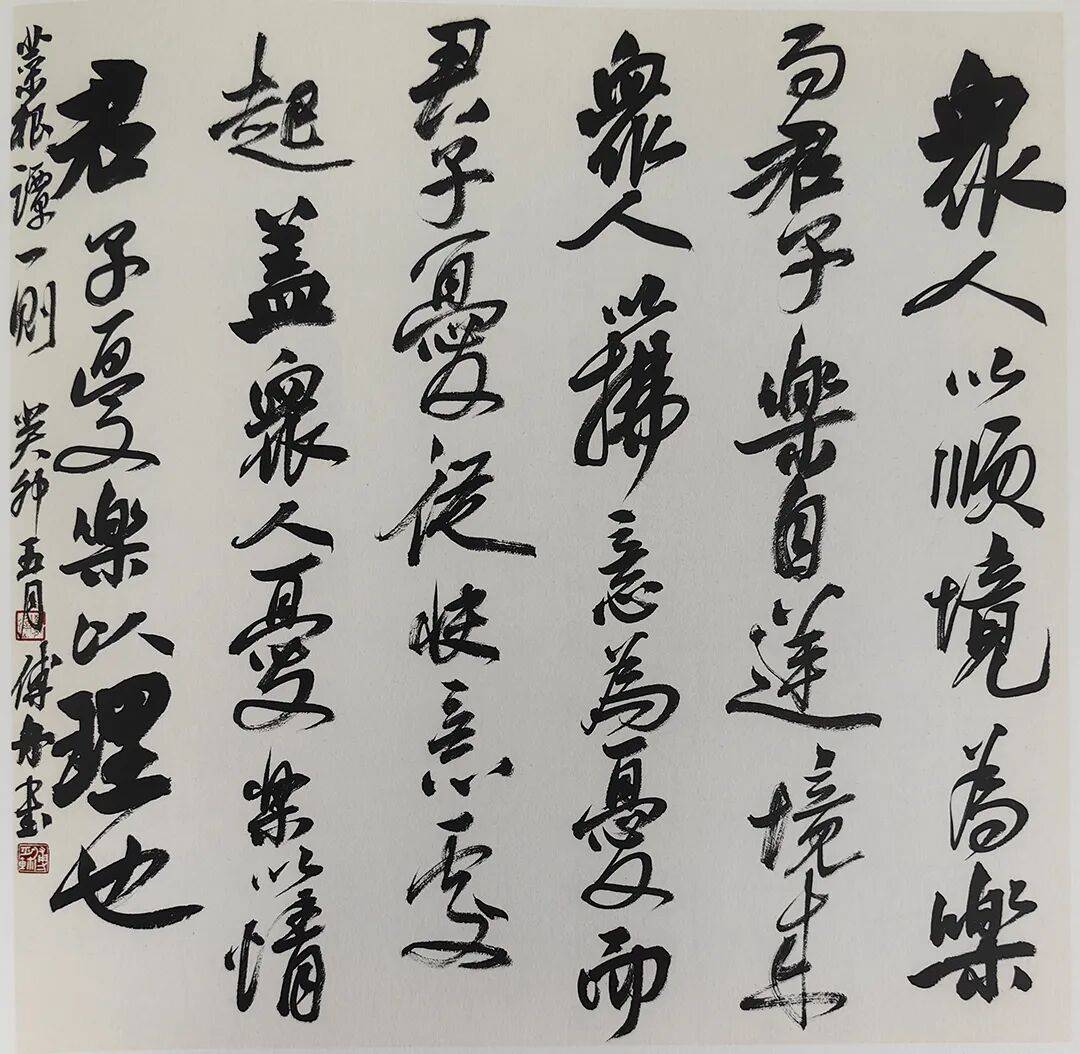 眾人以順境為樂
而君子樂自逆境来
眾人以拂意為憂而
君子憂從快意處
起蓋眾人憂樂以情
君子憂樂以理也
菜根譚一則 癸卯五月 傅舟書